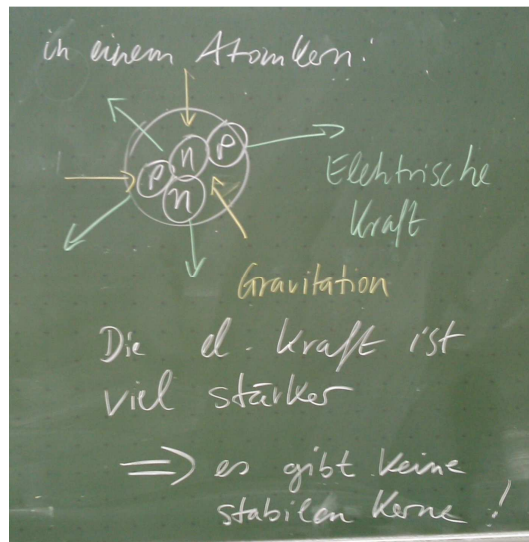 in einem Atomkern:
n
P
P
n
Elektrische
Kraft
Gravitation
Die el. Kraft ist
viel stärker
=> es gibt keine
stabilen Kerne!